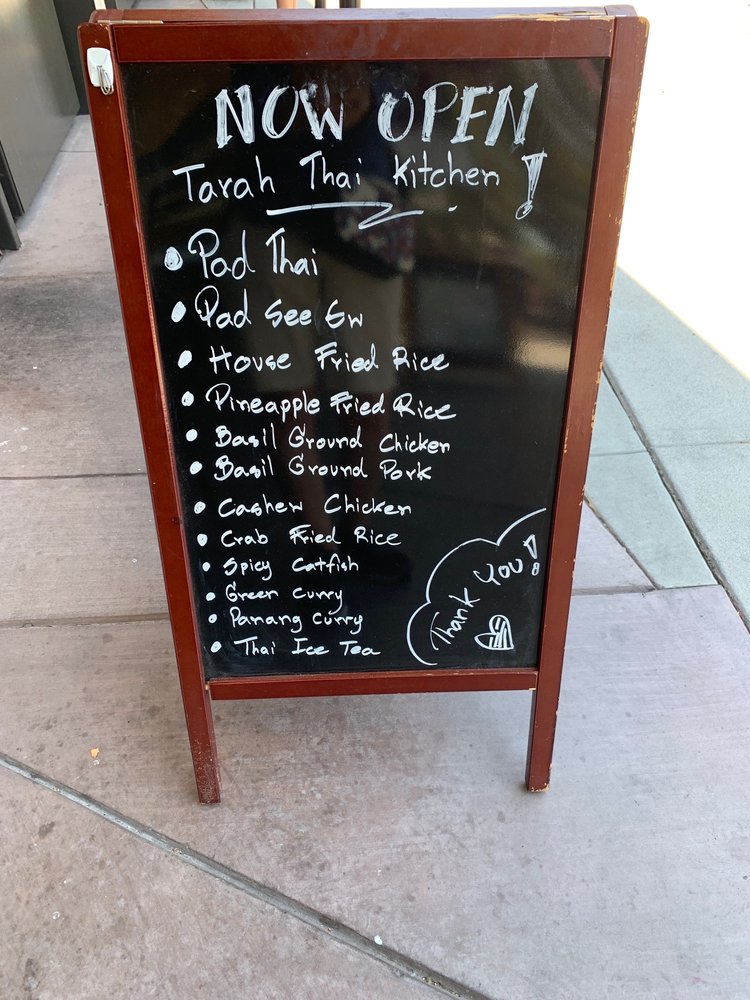 NOW OPEN
Tarah Thai Kitchen !
• Pad Thai
• Pad See Ew
• House Fried Rice
• Pineapple Fried Rice
• Basil Ground Chicken
• Basil Ground Pork
• Cashew Chicken
• Crab Fried Rice
• Spicy Catfish
• Green Curry
• Panang Curry
• Thai Ice Tea
Thank You!